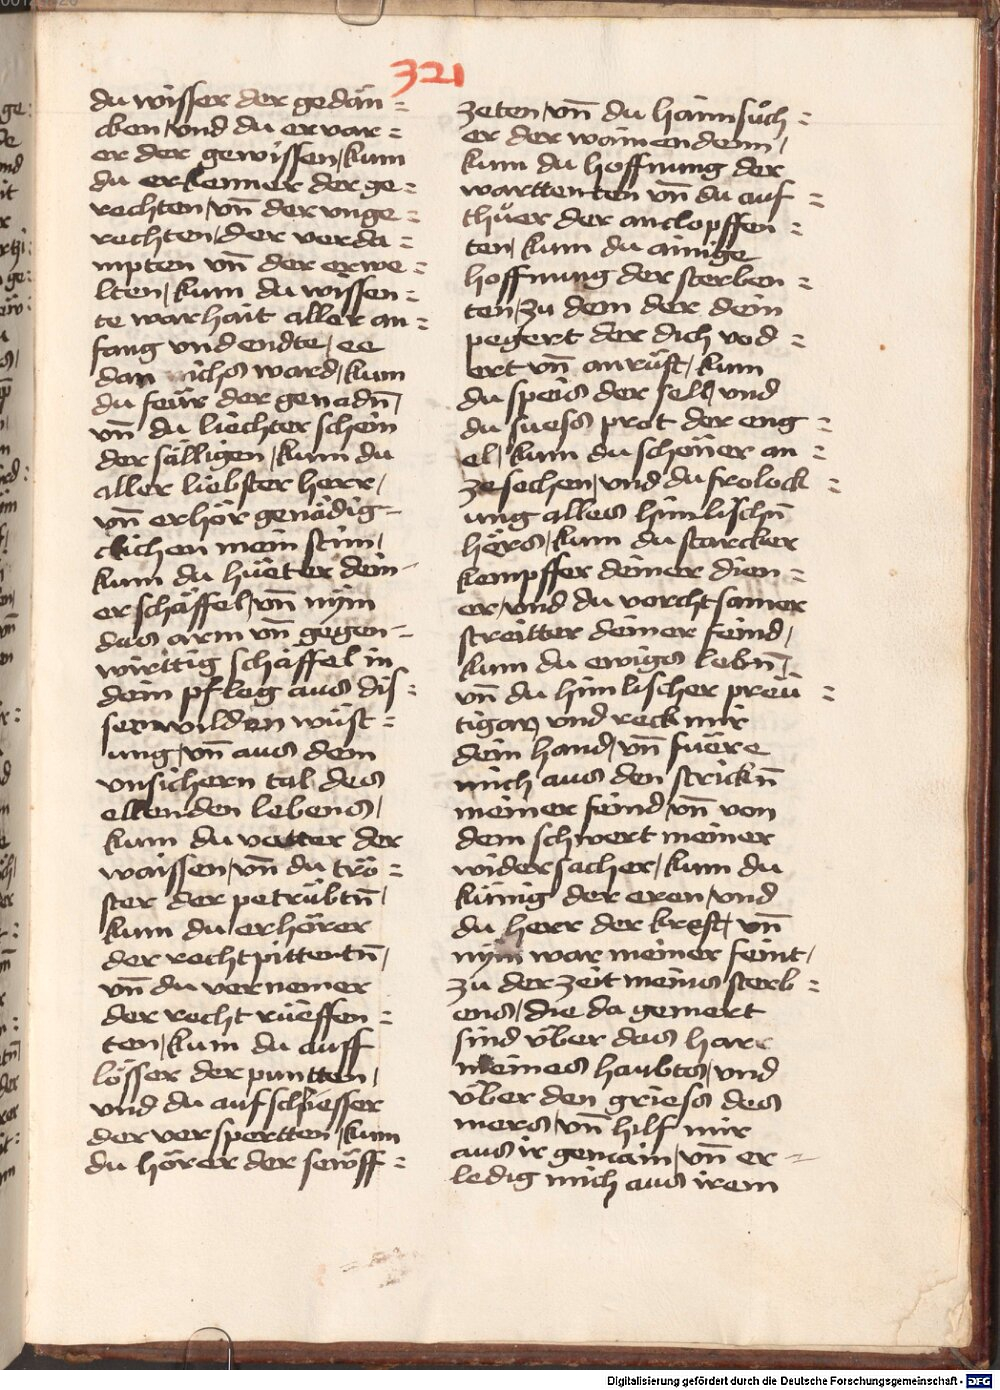 321
du wisser der gedän =
cken / vnd du ervar =
er der gewissen / kum
du erkenner der ge =
rechten / vn̄ der vnge =
rechten / der verda =
mpten vn̄ der erwe =
lten / kum du wissen =
te warhait aller an =
fang vnd endte / ee
dan nichs ward / kum
du feür der genadn̄ /
vn̄ du liechter schein
der sälligen / kum du
aller liebster herr /
vn̄ erhör genädig =
clichen mein stim /
kum du hüeter dein =
er schäffel / vn̄ nym
das arm vn̄ gegen =
wirttig schäffel in
dein pfleg aus dis =
ser wilden wüst =
ung / vn̄ aus dem
vnsichern tal des
ellenden lebens /
kum du vatter der
waissen / vn̄ du trö =
ster der petrübtn̄ /
kum du erhörer
der recht pittentn̄ /
vn̄ du vernemer
der recht rüeffen =
ten / kum du auff
lösser der puntten /
vnd du aufschliesser
der verspertten / kum
du hörer der sewff =
zeten / vn̄ du haimsuͦch =
er der wainendenn /
kum du hoffnung der
warttenten vn̄ du auf =
thuͦer der anclopffen =
ten / kum du ainige
hoffnung der sterben =
ten / zu dem der dein
pegert der dich vod =
ert vn̄ anrüft / kum
du speis der sell / vnd
du suess prot der eng =
el / kum du schöner an =
zesechen / vnd du frolock =
ung alles himlischn̄
hörs / kum du starcker
kempffer deiner dien =
er / vnd du vorchtsamer
streitter deiner feind /
kum du ewigs lebn̄ /
vn̄ du himlischer preü =
tigan / vnd reck mir
dein hand / vn̄ fuere
mich aus den strickn̄
meiner feind / vn̄ von
dem schwert meiner
widersacher / kum du
künig der eren / vnd
du herr der kreft / vn̄
nym war meiner feint /
zu der zeit meins sterb =
ens / die da gemert
sind über das harr
meines haubts / vnd
über den griess des
mers / vn̄ hilf mir
aus ir gemain / vn̄ er =
ledig mich aus irem
Digitalisierung gefördert durch die Deutsche Forschungsgemeinschaft - DFG